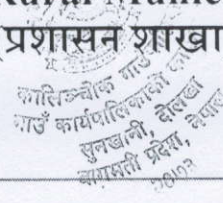 प्रशासन शाखा
कालिञ्चोक गाउँ
गाउँ कार्यपालिकाको
सुनखानी, दोलखा
बागमती प्रदेश, नेपाल
२०७३